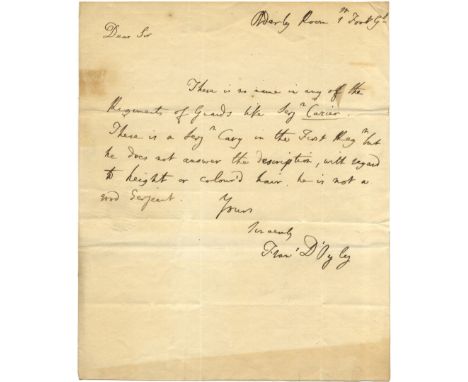 Orderly Room 1st Foot Gds
Dear Sir
There is no name in any of the
Regiments of Guards like Serjt Carier.
There is a Serjt Cary in the First Regt but
he does not answer the description, with regard
to height or colour'd hair. he is not a
good Serjeant.
Yours
Sincerely
Frans D'Oyley